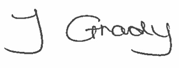 J Grady